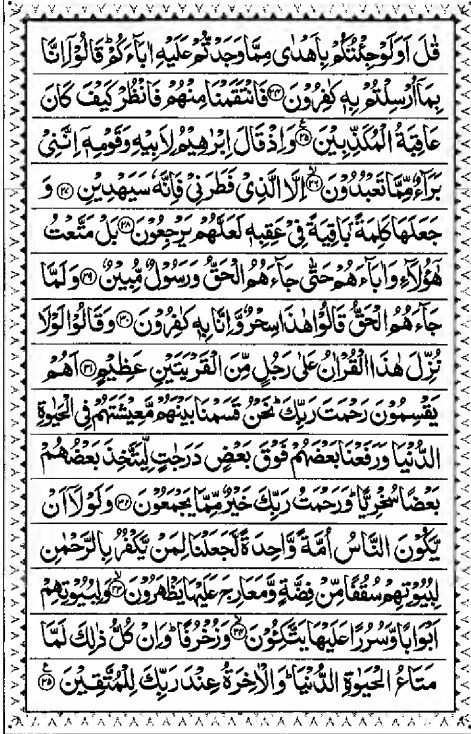 قٰلَ اَوَلَوْ جِئْتُكُمْ بِاَهْدٰى مِمَّا وَجَدْتُّمْ عَلَيْهِ اٰبَآءَكُمْ ؕ قَالُوْۤا اِنَّا
بِمَاۤ اُرْسِلْتُمْ بِهٖ كٰفِرُوْنَ ﴿۲۴﴾ فَانْتَقَمْنَا مِنْهُمْ فَانْظُرْ كَيْفَ كَانَ
عَاقِبَةُ الْمُكَذِّبِيْنَ ﴿۲۵﴾ ع وَاِذْ قَالَ اِبْرٰهِيْمُ لِاَبِيْهِ وَقَوْمِهٖۤ اِنَّنِىْ
بَرَآءٌ مِّمَّا تَعْبُدُوْنَ ﴿۲۶﴾ۙ اِلَّا الَّذِىْ فَطَرَنِىْ فَاِنَّهٗ سَيَهْدِيْنِ ﴿۲۷﴾ وَ
جَعَلَهَا كَلِمَةًۢ بَاقِيَةً فِىْ عَقِبِهٖ لَعَلَّهُمْ يَرْجِعُوْنَ ﴿۲۸﴾ بَلْ مَتَّعْتُ
هٰٓؤُلَآءِ وَاٰبَآءَهُمْ حَتّٰى جَآءَهُمُ الْحَقُّ وَرَسُوْلٌ مُّبِيْنٌ ﴿۲۹﴾ وَلَمَّا
جَآءَهُمُ الْحَقُّ قَالُوْا هٰذَا سِحْرٌ وَّاِنَّا بِهٖ كٰفِرُوْنَ ﴿۳۰﴾ وَقَالُوْا لَوْلَا
نُزِّلَ هٰذَا الْقُرْاٰنُ عَلٰى رَجُلٍ مِّنَ الْقَرْيَتَيْنِ عَظِيْمٍ ﴿۳۱﴾ اَهُمْ
يَقْسِمُوْنَ رَحْمَتَ رَبِّكَ ؕ نَحْنُ قَسَمْنَا بَيْنَهُمْ مَّعِيْشَتَهُمْ فِى الْحَيٰوةِ
الدُّنْيَا وَرَفَعْنَا بَعْضَهُمْ فَوْقَ بَعْضٍ دَرَجٰتٍ لِّيَتَّخِذَ بَعْضُهُمْ
بَعْضًا سُخْرِيًّا ؕ وَرَحْمَتُ رَبِّكَ خَيْرٌ مِّمَّا يَجْمَعُوْنَ ﴿۳۲﴾ وَلَوْلَاۤ اَنْ
يَّكُوْنَ النَّاسُ اُمَّةً وَّاحِدَةً لَّجَعَلْنَا لِمَنْ يَّكْفُرُ بِالرَّحْمٰنِ
لِبُيُوْتِهِمْ سُقُفًا مِّنْ فِضَّةٍ وَّمَعَارِجَ عَلَيْهَا يَظْهَرُوْنَ ﴿۳۳﴾ۙ وَلِبُيُوْتِهِمْ
اَبْوَابًا وَّسُرُرًا عَلَيْهَا يَتَّكِـُٔوْنَ ﴿۳۴﴾ۙ وَزُخْرُفًا ؕ وَاِنْ كُلُّ ذٰلِكَ لَمَّا
مَتَاعُ الْحَيٰوةِ الدُّنْيَا ؕ وَالْاٰخِرَةُ عِنْدَ رَبِّكَ لِلْمُتَّقِيْنَ ﴿۳۵﴾ ع